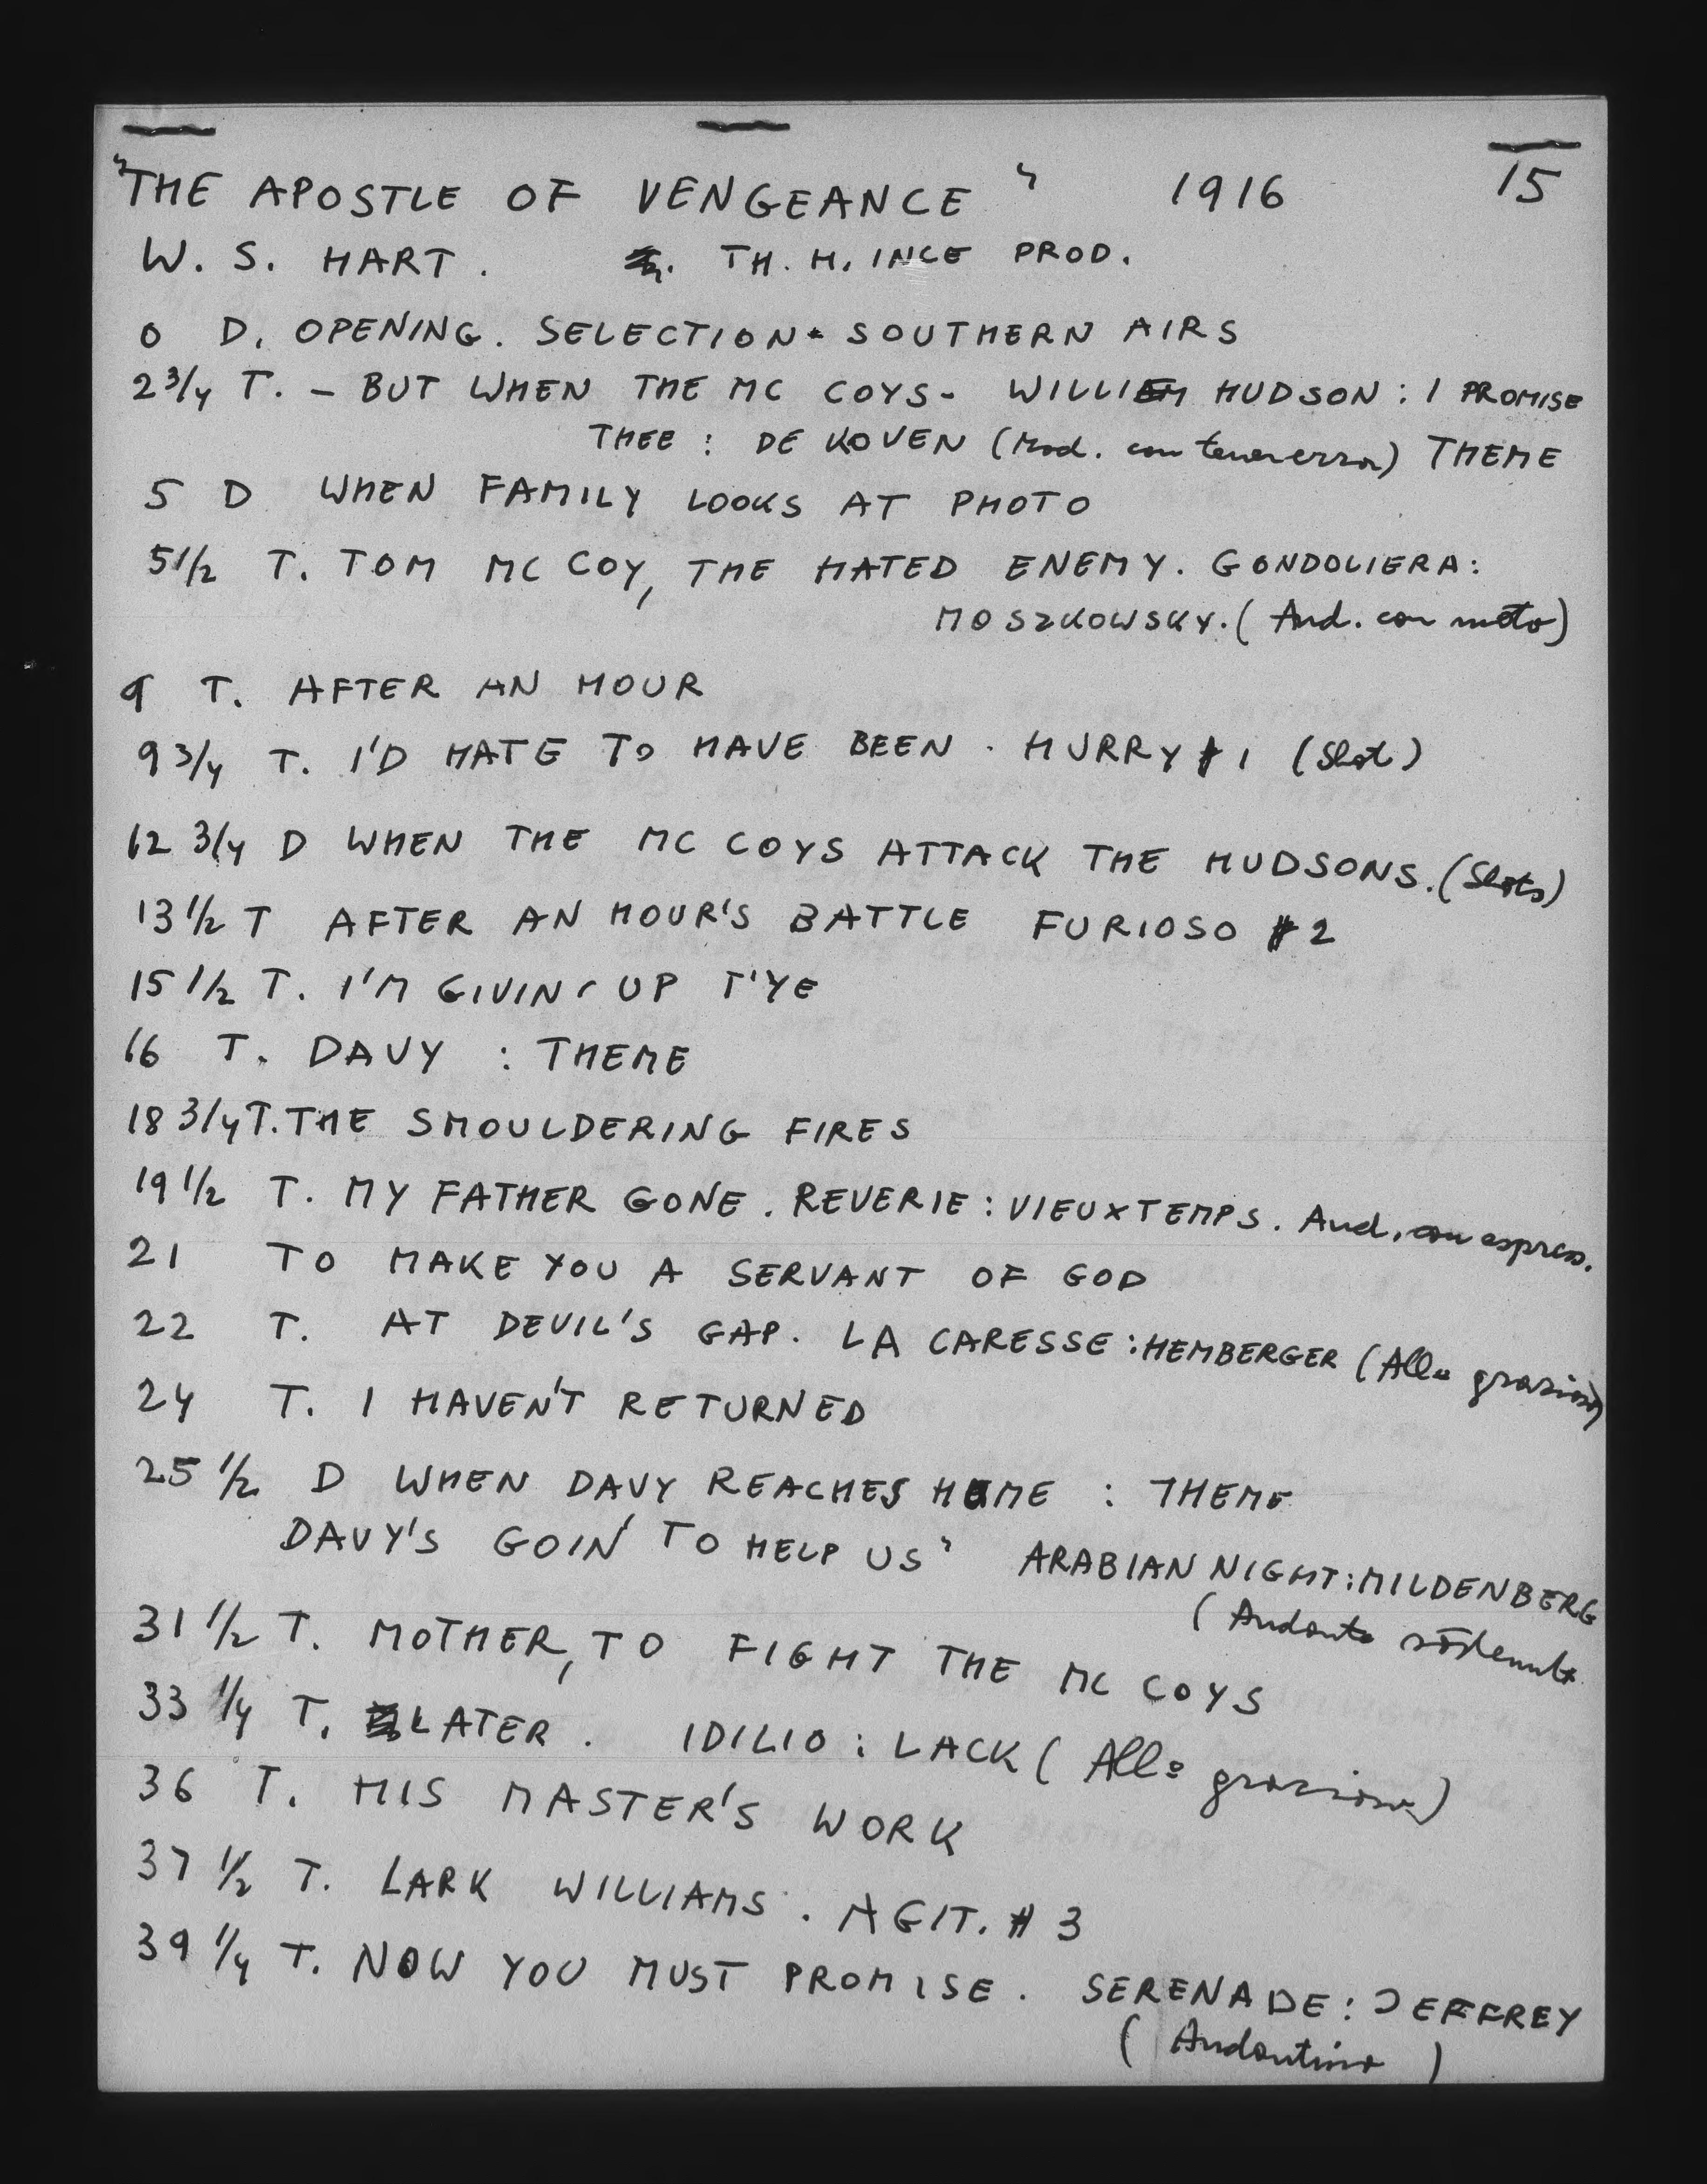 "THE APOSTLE OF VENGEANCE" 1916 15
W. S. HART. TH. H. INCE PROD.
0 D. OPENING. SELECTION - SOUTHERN AIRS
2 3/4 T. - BUT WHEN THE MC COYS - WILLIEM HUDSON: I PROMISE
THEE: DE KOVEN (Mod. con tenerezza) THEME
5 D WHEN FAMILY LOOKS AT PHOTO
5 1/2 T. TOM MC COY, THE HATED ENEMY. GONDOLIERA:
MOSZKOWSKY. (And. con moto)
9 T. AFTER AN HOUR
9 3/4 T. I'D HATE TO HAVE BEEN. HURRY # 1 (Shot)
12 3/4 D WHEN THE MC COYS ATTACK THE HUDSONS. (Shots)
13 1/2 T AFTER AN HOUR'S BATTLE FURIOSO # 2
15 1/2 T. I'M GIVIN' UP T'YE
16 T. DAVY : THEME
18 3/4 T. THE SMOULDERING FIRES
19 1/2 T. MY FATHER GONE. REVERIE: VIEUXTEMPS. And. con espress.
21 TO MAKE YOU A SERVANT OF GOD
22 T. AT DEVIL'S GAP. LA CARESSE: HEMBERGER (Allo grazioso)
24 T. I HAVEN'T RETURNED
25 1/2 D WHEN DAVY REACHES HOME : THEME
DAVY'S GOIN' TO HELP US" ARABIAN NIGHT: MILDENBERG
(Andante sostenuto
31 1/2 T. MOTHER, TO FIGHT THE MC COYS
33 1/4 T. LATER. IDILIO: LACK (Allo grazioso)
36 T. HIS MASTER'S WORK
37 1/2 T. LARK WILLIAMS. AGIT. # 3
39 1/4 T. NOW YOU MUST PROMISE. SERENADE: JEFFREY
(Andantino)